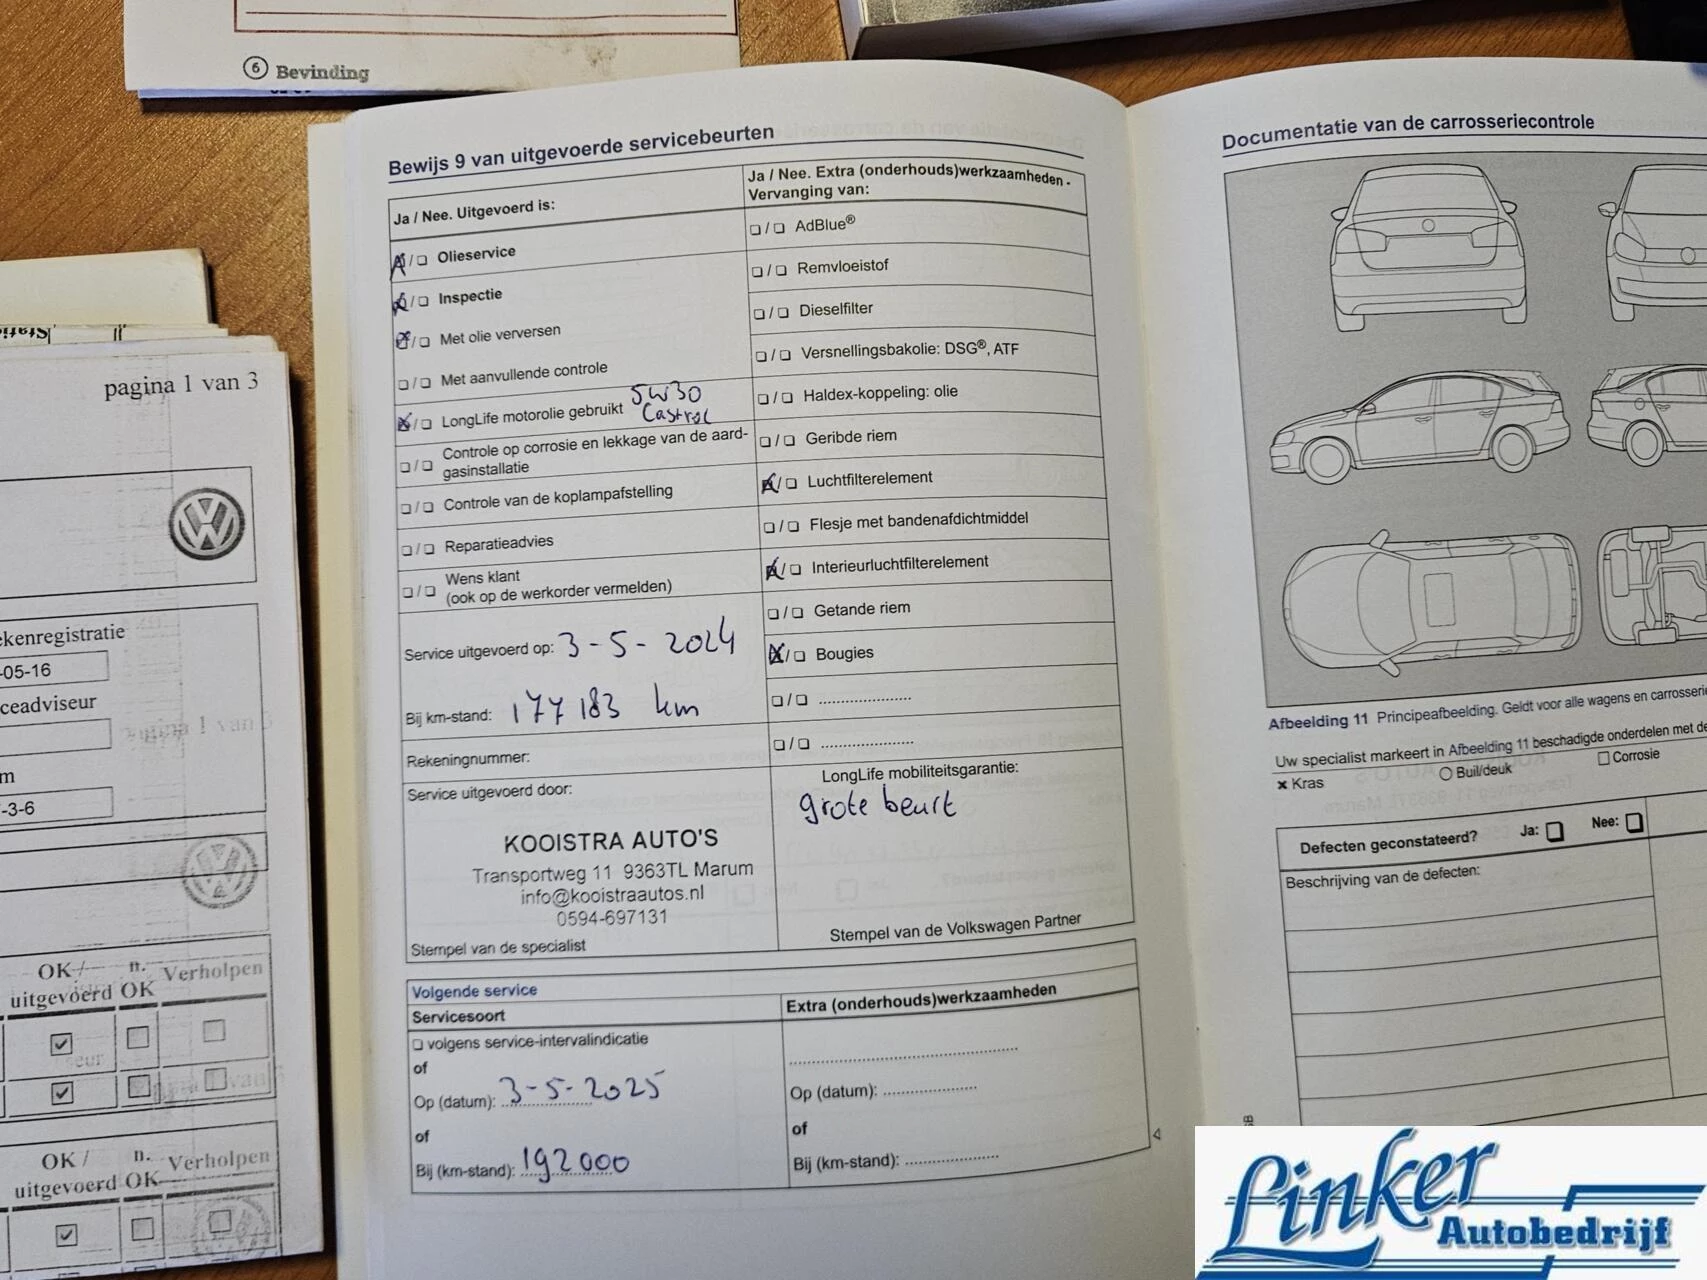 6 Bevinding
Statio
pagina 1 van 3
ekenregistratie
-05-16
ceadviseur
pagina 1 van 3
m
-3-6
OK / n. Verholpen
uitgevoerd OK
OK / n. Verholpen
uitgevoerd OK
Bewijs 9 van uitgevoerde servicebeurten
Ja / Nee. Uitgevoerd is:
Olieservice
Inspectie
Met olie verversen
Met aanvullende controle
LongLife motorolie gebruikt 5W30
Castrol
Controle op corrosie en lekkage van de aard-
gasinstallatie
Controle van de koplampafstelling
Reparatieadvies
Wens klant
(ook op de werkorder vermelden)
Service uitgevoerd op: 3-5-2024
Bij km-stand: 177 183 km
Rekeningnummer:
Service uitgevoerd door:
KOOISTRA AUTO'S
Transportweg 11 9363TL Marum
info@kooistraautos.nl
0594-697131
Stempel van de specialist
Ja / Nee. Extra (onderhouds)werkzaamheden -
Vervanging van:
AdBlue®
Remvloeistof
Dieselfilter
Versnellingsbakolie: DSG®, ATF
Haldex-koppeling: olie
Geribde riem
Luchtfilterelement
Flesje met bandenafdichtmiddel
Interieurluchtfilterelement
Getande riem
Bougies
LongLife mobiliteitsgarantie:
grote beurt
Stempel van de Volkswagen Partner
Volgende service
Servicesoort
volgens service-intervalindicatie
of
Op (datum): 3-5-2025
of
Bij (km-stand): 192000
Extra (onderhouds)werkzaamheden
Op (datum):
of
Bij (km-stand):
Documentatie van de carrosseriecontrole
Afbeelding 11 Principeafbeelding. Geldt voor alle wagens en carrosserie
Uw specialist markeert in Afbeelding 11 beschadigde onderdelen met de
Kras Buil/deuk Corrosie
Defecten geconstateerd? Ja: Nee:
Beschrijving van de defecten:
Linker
Autobedrijf